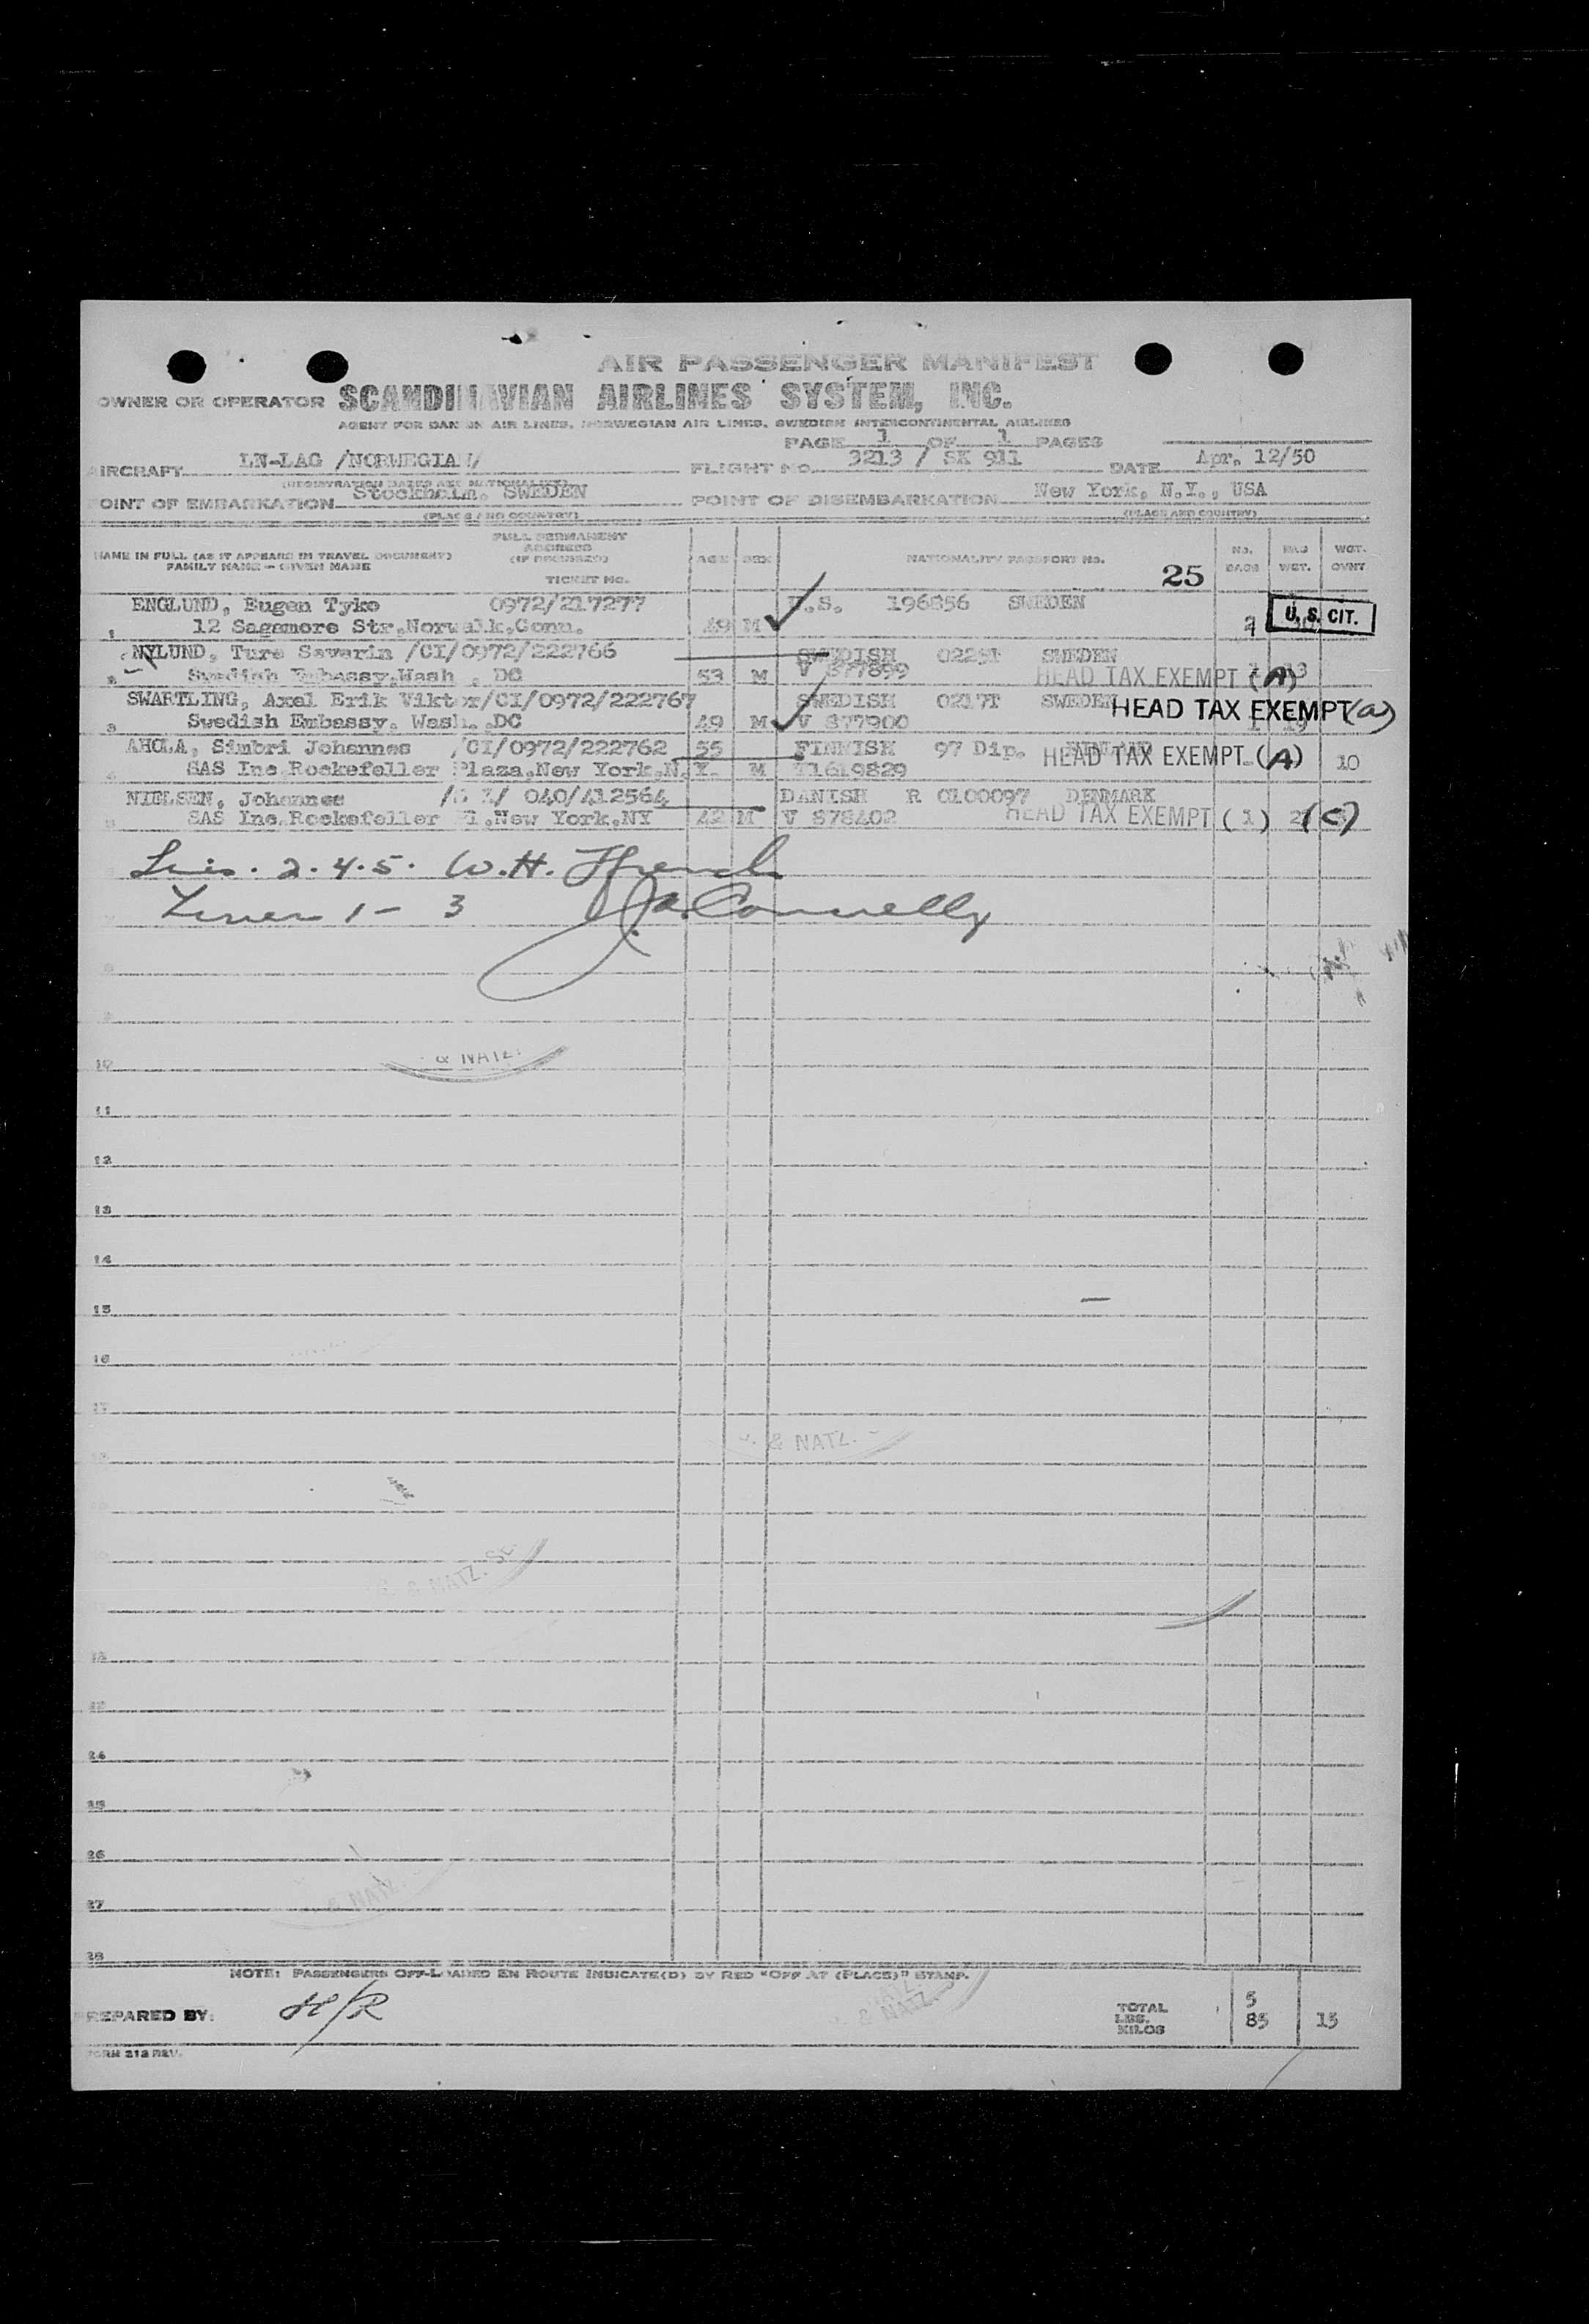 AIR PASSENGER MANIFEST
OWNER OR OPERATOR SCANDINAVIAN AIRLINES SYSTEM, INC.
AGENT FOR DANISH AIR LINES, NORWEGIAN AIR LINES, SWEDISH INTERCONTINENTAL AIRLINES
PAGE 1 OF 1 PAGES
AIRCRAFT LN-LAG /NORWEGIAN/ FLIGHT NO. 3213 / SK 911 DATE Apr. 12/50
POINT OF EMBARKATION Stockholm, SWEDEN POINT OF DISEMBARKATION New York, N.Y., USA
(PLACE AND COUNTRY) (PLACE AND COUNTRY)
NAME IN FULL (AS IT APPEARS IN TRAVEL DOCUMENT) FAMILY NAME — GIVEN NAME
FULL PERMANENT ADDRESS (IF REQUIRED) TICKET NO.
AGE SEX NATIONALITY PASSPORT NO. 25 NO. BAGS BAG WGT. WGT. OVWT
ENGLUND, Eugen Tyko 0972/217277 U.S. 196856 SWEDEN
1 12 Sagamore Str.Norwalk,Conn. 49 M U.S. CIT.
NYLUND, Ture Saverin /CI/0972/222766 SWEDISH SWEDEN
Swedish Embassy,Wash . DC 53 M V 877899 HEAD TAX EXEMPT (A)
SWARTLING, Axel Erik Viktor/CI/0972/222767 SWEDISH 0217T SWEDEN
3 Swedish Embassy. Wash. .DC 49 M V 877900 HEAD TAX EXEMPT (a)
AHOLA, Simbri Johannes /CI/0972/222762 55 FINNISH 97 Dip.
SAS Inc.Rockefeller Plaza,New York,N.Y. M V1619829 HEAD TAX EXEMPT (A) 10
NIELSEN, Johannes 040/412564 DANISH R 0100097 DENMARK
SAS Inc.Rockefeller Pl.,New York,NY 42 M V 878402 HEAD TAX EXEMPT (1) (C)
2. 4. 5. W.H. Ffrench
1 - 3 J.A. Connelly
& NATZ.
10
11
12
13
14
15
16
17
& NATZ.
& NATZ. SE
24
25
26
& NATZ.
27
28
NOTE: PASSENGERS OFF-LOADED EN ROUTE INDICATE(D) BY RED "OFF AT (PLACE)" STAMP.
& NATZ.
PREPARED BY: H/R
TOTAL 5
LBS. 85 13
KILOS
FORM 212 REV.